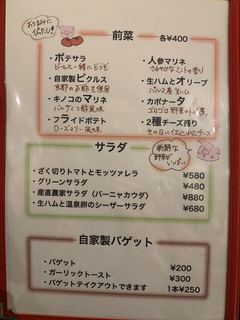 おつまみに
ぴったり！
前菜 各¥400
・ポテサラ
ビールと一緒にどうぞ
・自家製ピクルス
京都のお酢を使用
・キノコのマリネ
・フライドポテト
ローズマリー風味
・人参マリネ
さわやかなミントの香り
・生ハムとオリーブ
パルマ産 生ハム
・カポナータ
ゴロゴロ野菜の
・2種チーズ盛り
サラダ
新鮮な
野菜が
いっぱい
・ざく切りトマトとモッツァレラ ¥580
・グリーンサラダ ¥480
・産直農家サラダ（バーニャカウダ） ¥880
・生ハムと温泉卵のシーザーサラダ ¥680
自家製バゲット
・バゲット ¥200
・ガーリックトースト ¥300
・バゲットテイクアウトできます 1本¥250